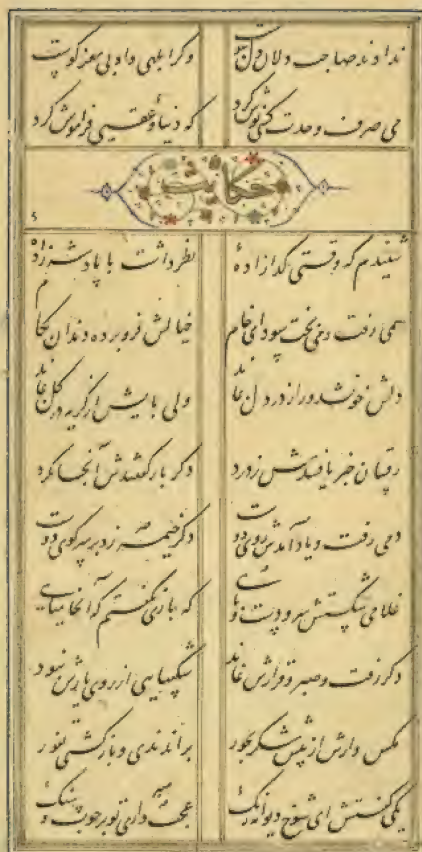 ندادند صاحب دلان دل بپوست وگر ابلهی داد بی مغز کوست
می صرف وحدت کسی نوش کرد که دنیا و عقبی فراموش کرد
حکایت
شنیدم که وقتی گدازاده نظر داشت با پادشه زاده
همی رفت و می پخت سودای خام خیالش فرو برده دندان بکام
دلش خون شد و راز در دل نماند ولی پایش از گریه در گل بماند
رقیبان خبر یافتندش ز درد دگر باره گفتندش آنجا مگرد
دمی رفت و یاد آمدش روی دوست دگر خیمه زد بر سر کوی دوست
غلامی شکستش سر و دست و پای که باری نگفتم که آنجا میای
دگر رفت و صبر و قرارش نماند شکیبایی از روی یارش نبود
مگس وارش از پیش شکر بجور براندندی و بازگشتی بفور
یکی گفتش ای شوخ دیوانه رنگ عجب صبر داری تو بر چوب و سنگ